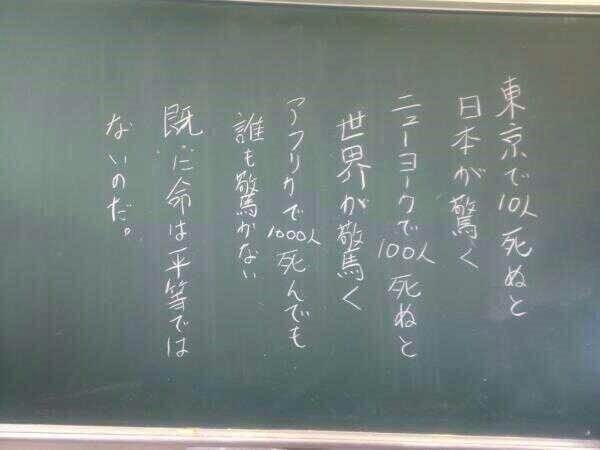 東京で10人死ぬと
日本が驚く
ニューヨークで100人死ぬと
世界が驚く
アフリカで1000人死んでも
誰も驚かない
既に命は平等では
ないのだ。